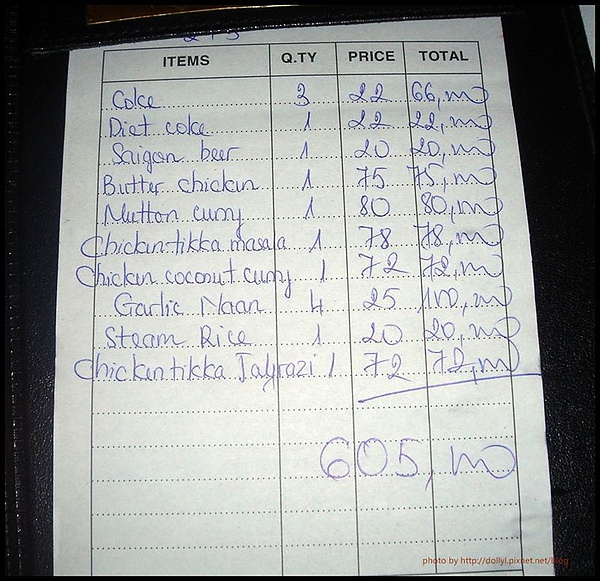 ITEMS Q.TY PRICE TOTAL
Coke 3 22 66,000
Diet coke 1 22 22,000
Saigon beer 1 20 20,000
Butter chicken 1 75 75,000
Mutton curry 1 80 80,000
Chicken tikka masala 1 78 78,000
Chicken coconut curry 1 72 72,000
Garlic Naan 4 25 100,000
Steam Rice 1 20 20,000
Chicken tikka Jalfrazi 1 72 72,000
605,000
photo by http://dollyl.pixnet.net/blog